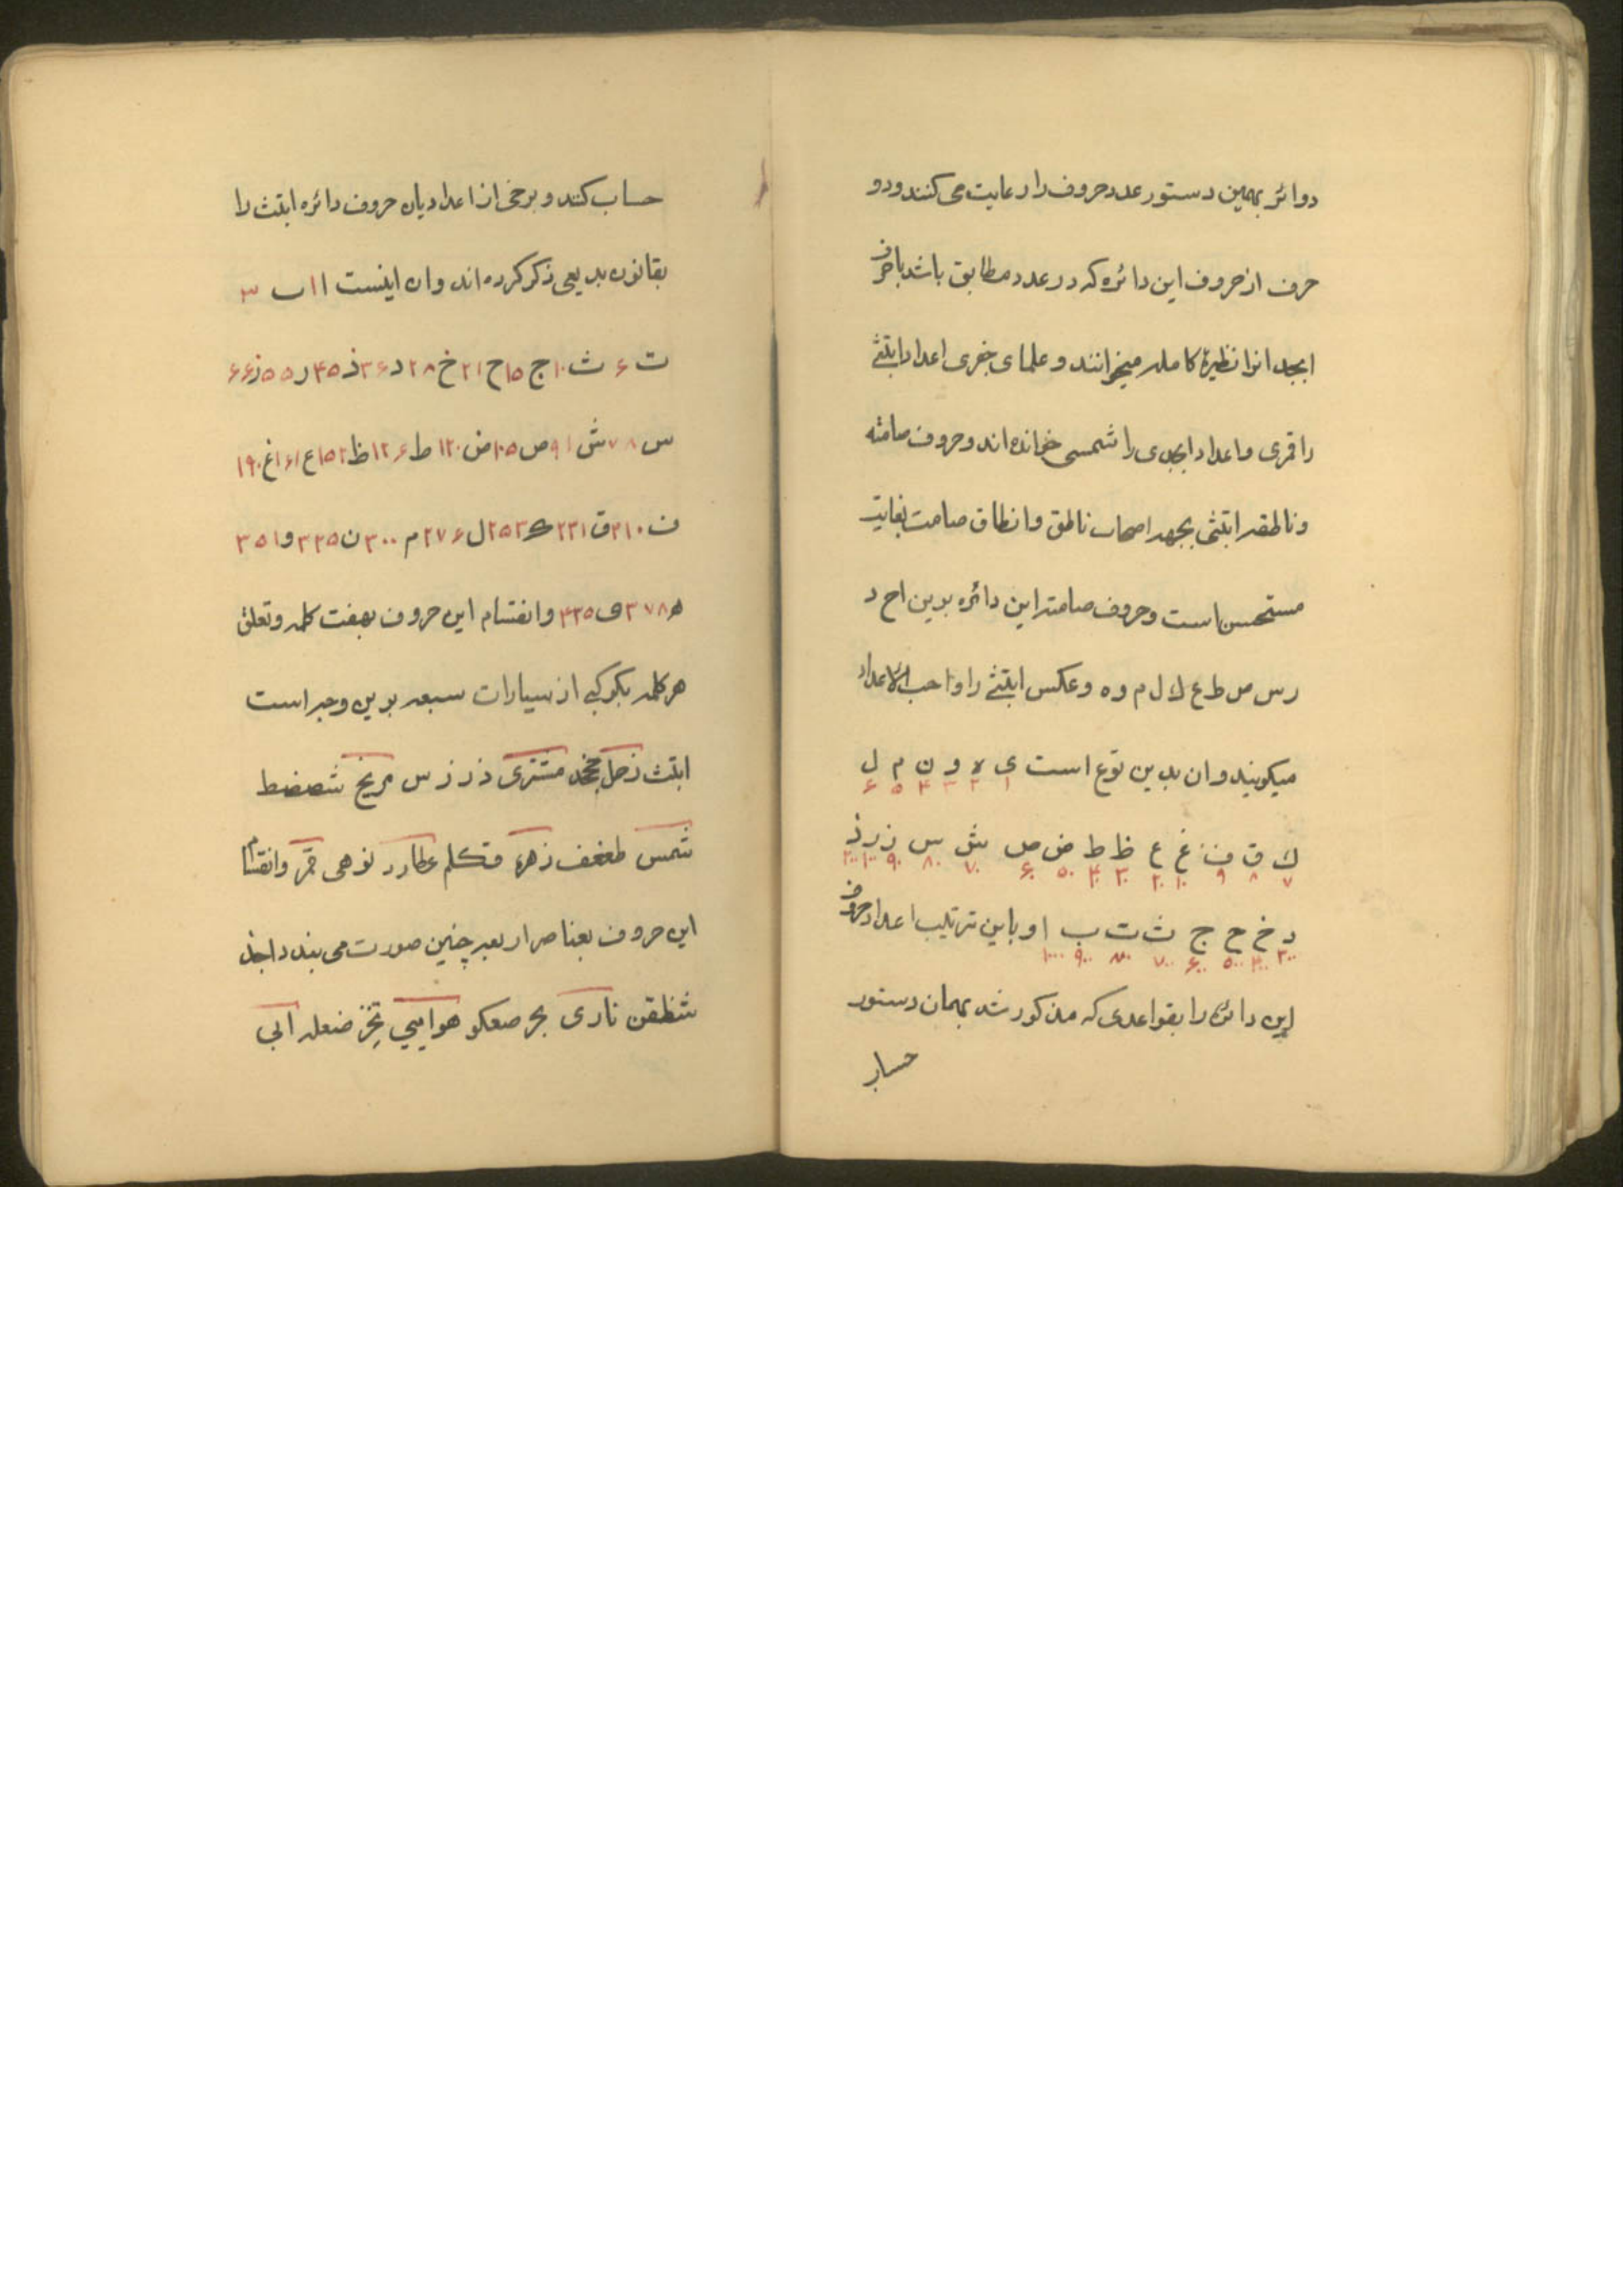 دوائر بهمین دستور عدد حروف را رعایت می کنند و دو
حرف از حروف این دائره که در عدد مطابق باشد با حرف
ابجد انرا نظیرهٔ کامله میخوانند و علمای جفری اعداد ابتثی
را قمری و اعداد ابجدی را شمسی خوانده اند و حروف صامته
و ناطقه ابتثی بجهه اصحاب ناطق و انطاق صامت بغایت
مستحسن است و حروف صامته این دائره بدین ا ح د
ر س ص ط ع ك ل م و ه و عکس ابتثی را واحب الاعداد
میکویند و ان بدین نوع است ی ه و ن م ل
۱ ۲ ۳ ۴ ۵ ۶
ك ق ف غ ع ظ ط ض ص ش س ز ر ذ
۷ ۸ ۹ ۱۰ ۲۰ ۳۰ ۴۰ ۵۰ ۶۰ ۷۰ ۸۰ ۹۰ ۱۰۰ ۲۰۰
د خ ح ج ث ت ب ا و باین ترتیب اعداد حروف
۳۰۰ ۴۰۰ ۵۰۰ ۶۰۰ ۷۰۰ ۸۰۰ ۹۰۰ ۱۰۰۰
این دائره را بقواعدی که مذکور شد بهمان دستور
حساب
حساب کنند و برخی از اعدادیان حروف دائره ابتث را
بقانون بدیعی ذکر کرده اند و ان اینست ا ۱ ب ۳
ت ۶ ث ۱۰ ج ۱۵ ح ۲۱ خ ۲۸ د ۳۶ ذ ۴۵ ر ۵۵ ز ۶۶
س ۷۸ ش ۹۱ ص ۱۰۵ ض ۱۲۰ ط ۱۲۶ ظ ۱۵۲ ع ۱۶۱ غ ۱۹۰
ف ۲۱۰ ق ۲۳۱ ك ۲۵۳ ل ۲۷۶ م ۳۰۰ ن ۳۲۵ و ۳۵۱
ه ۳۷۸ ی ۴۲۵ و انقسام این حروف بهفت کلمه و تعلق
هر کلمه بکوکبی از سیارات سبعه بدین وجه است
ابتث زحل جحخد مشتری ذ ر ز س مریخ شصضط
شمس ظعغف زهره قکلم عطارد نوهی قمر و انقسام
این حروف بعناصر اربعه چنین صورت می بندد اجذ
شظقن ناری بحر صعکو هوایی تخز ضغله ابی